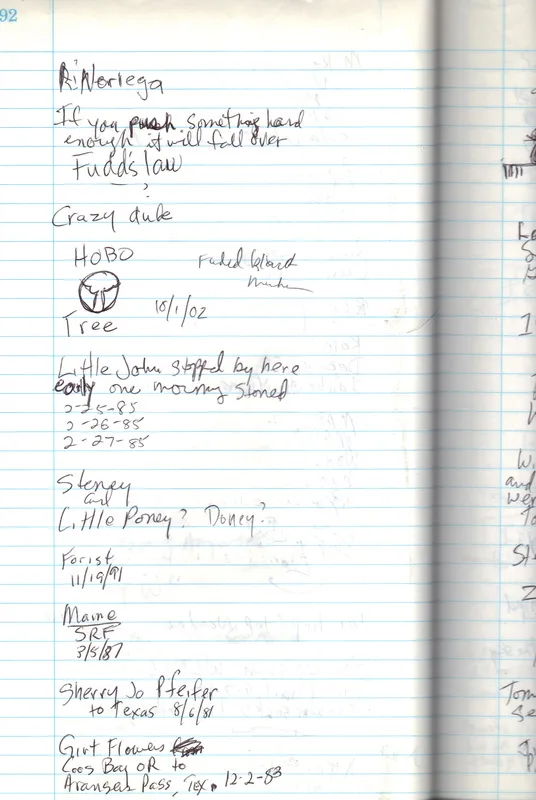 92
R. Noriega
If you push something hard
enough it will fall over
Fudd's law
?
Crazy dude
HOBO
Tree
10/1/02
Little John stopped by here
early one morning stoned
2-25-85
2-26-85
2-27-85
and
Little Poney? Doney?
Forist
11/19/91
Maine
SRF
3/5/87
Sherry Jo Pfeifer
to Texas 8/6/81
Girt Flowers
Coos Bay OR to
Aransas Pass, Tex. 12-2-83